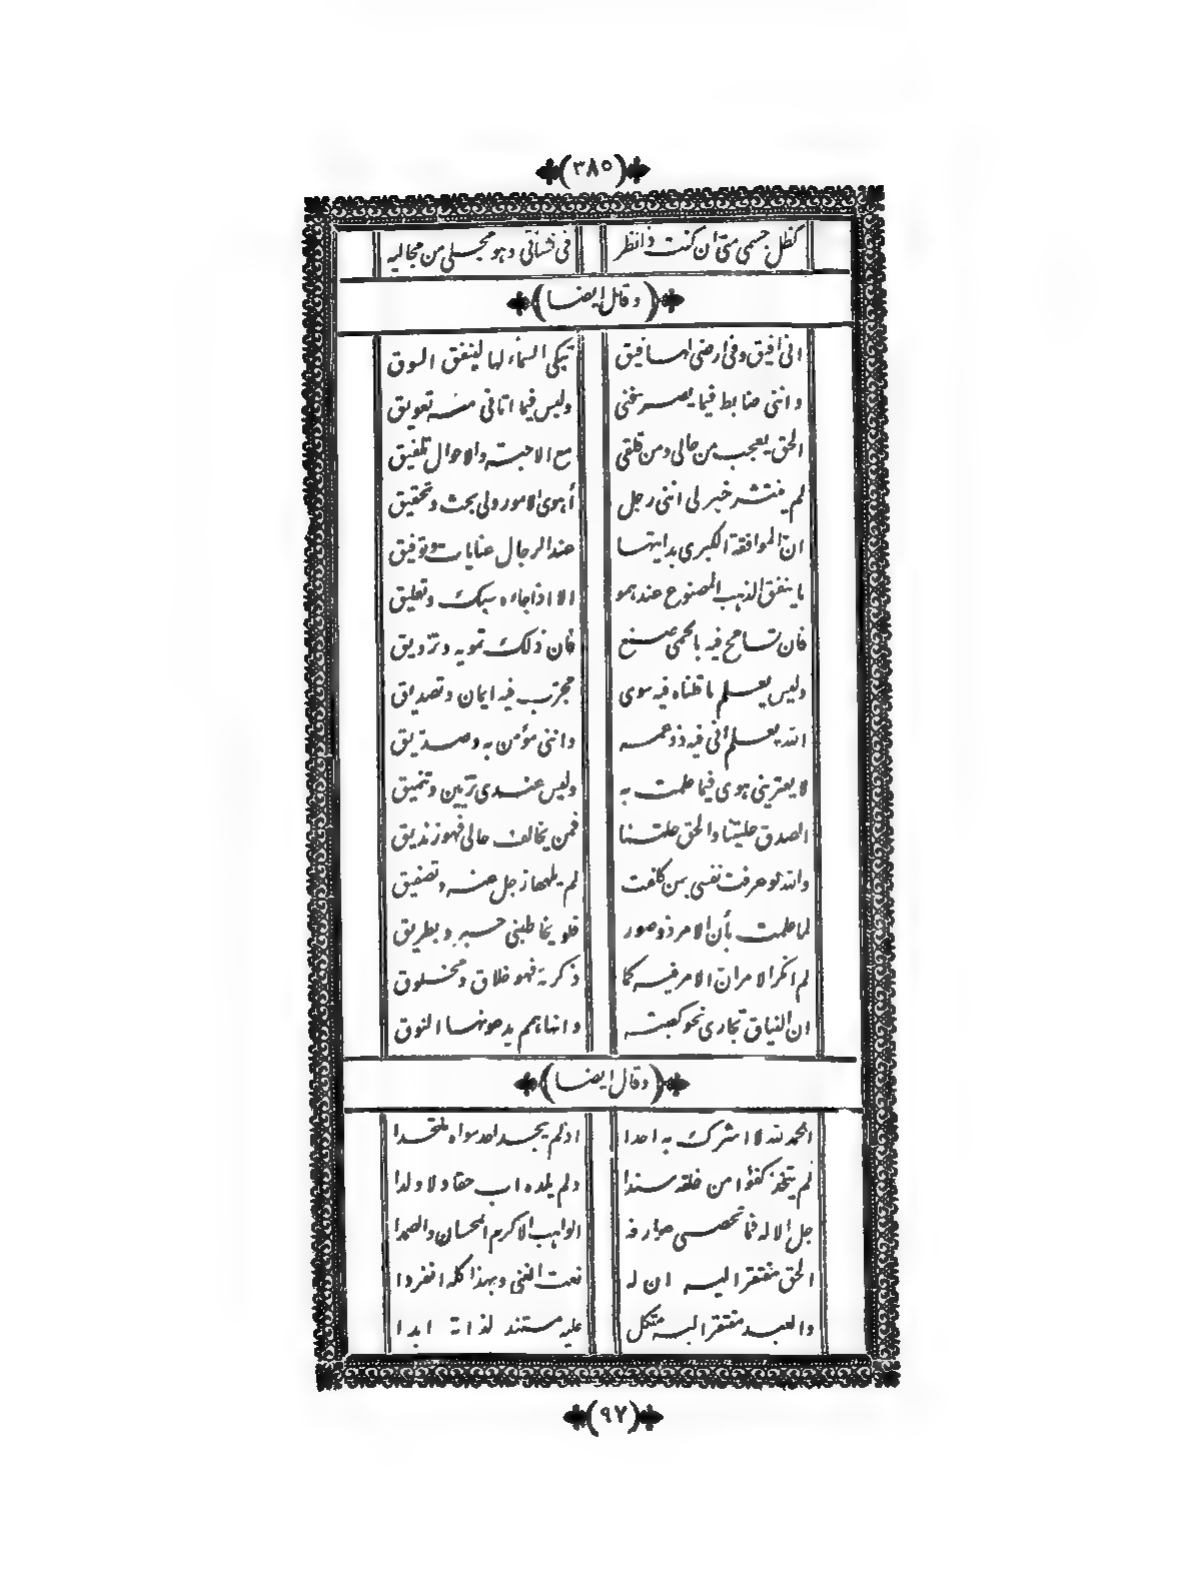 (٣٨٥)
كظل جسمى منى ان كنت ذا نظر    فى نشأتى وهو مجلى من مجاليه
(وقال ايضا)
انى افيق وفى ارضى لها فيق    تبكى السماء لها لينفق السوق
واننى ضابط فيما يصرفنى    وليس فيما اتانى منه تعويق
الحق يعجب من حالى ومن قلقى    مع الاحبة والاحوال تلفيق
لم ينتشر خبر لى اننى رجل    أهوى الامور ولى بحث وتحقيق
ان الموافقة الكبرى بدايتها    عند الرجال عنايات وتوفيق
ما ينفق الذهب المصنوع عندهمو    الا اذا جاءه سبك وتعليق
فان تسامح فيه بالحمى صنع    فان ذلك تمويه وتزويق
وليس يعلم ما قلناه فيه سوى    مجرب فيه ايمان وتصديق
الله يعلم انى فيه ذو عمه    واننى مؤمن به وصديق
لا يعترينى هوى فيما علمت به    وليس عندى تزيين وتنميق
الصدق حليتنا والحق حلتنا    فمن يخالف حالى فهو زنديق
والله لو عرفت نفسى بمن كلفت    لم يلهها زجل عنه وتصفيق
لما علمت بأن الامر ذو صور    فلو يخاطبنى حبر وبطريق
لم انكر الامر ان الامر فيه كما    ذكرته فهو خلاق ومخلوق
ان النياق تجارى نحو كعبته    وانها هم يدعونها النوق
(وقال ايضا)
الحمد لله لا اشرك به احدا    اذ لم يجد احد سواه ملتحدا
لم يتخذ كفؤا من خلقه سندا    ولم يلده اب حقا ولا ولدا
جل الاله فما تحصى عوارفه    الواهب الاكرم المحسان والصمدا
الحق مفتقر اليه ان له    نعت الغنى وبهذا كله انفردا
والعبد مفتقر اليه متكل    عليه مستند لذاته ابدا
(٩٧)